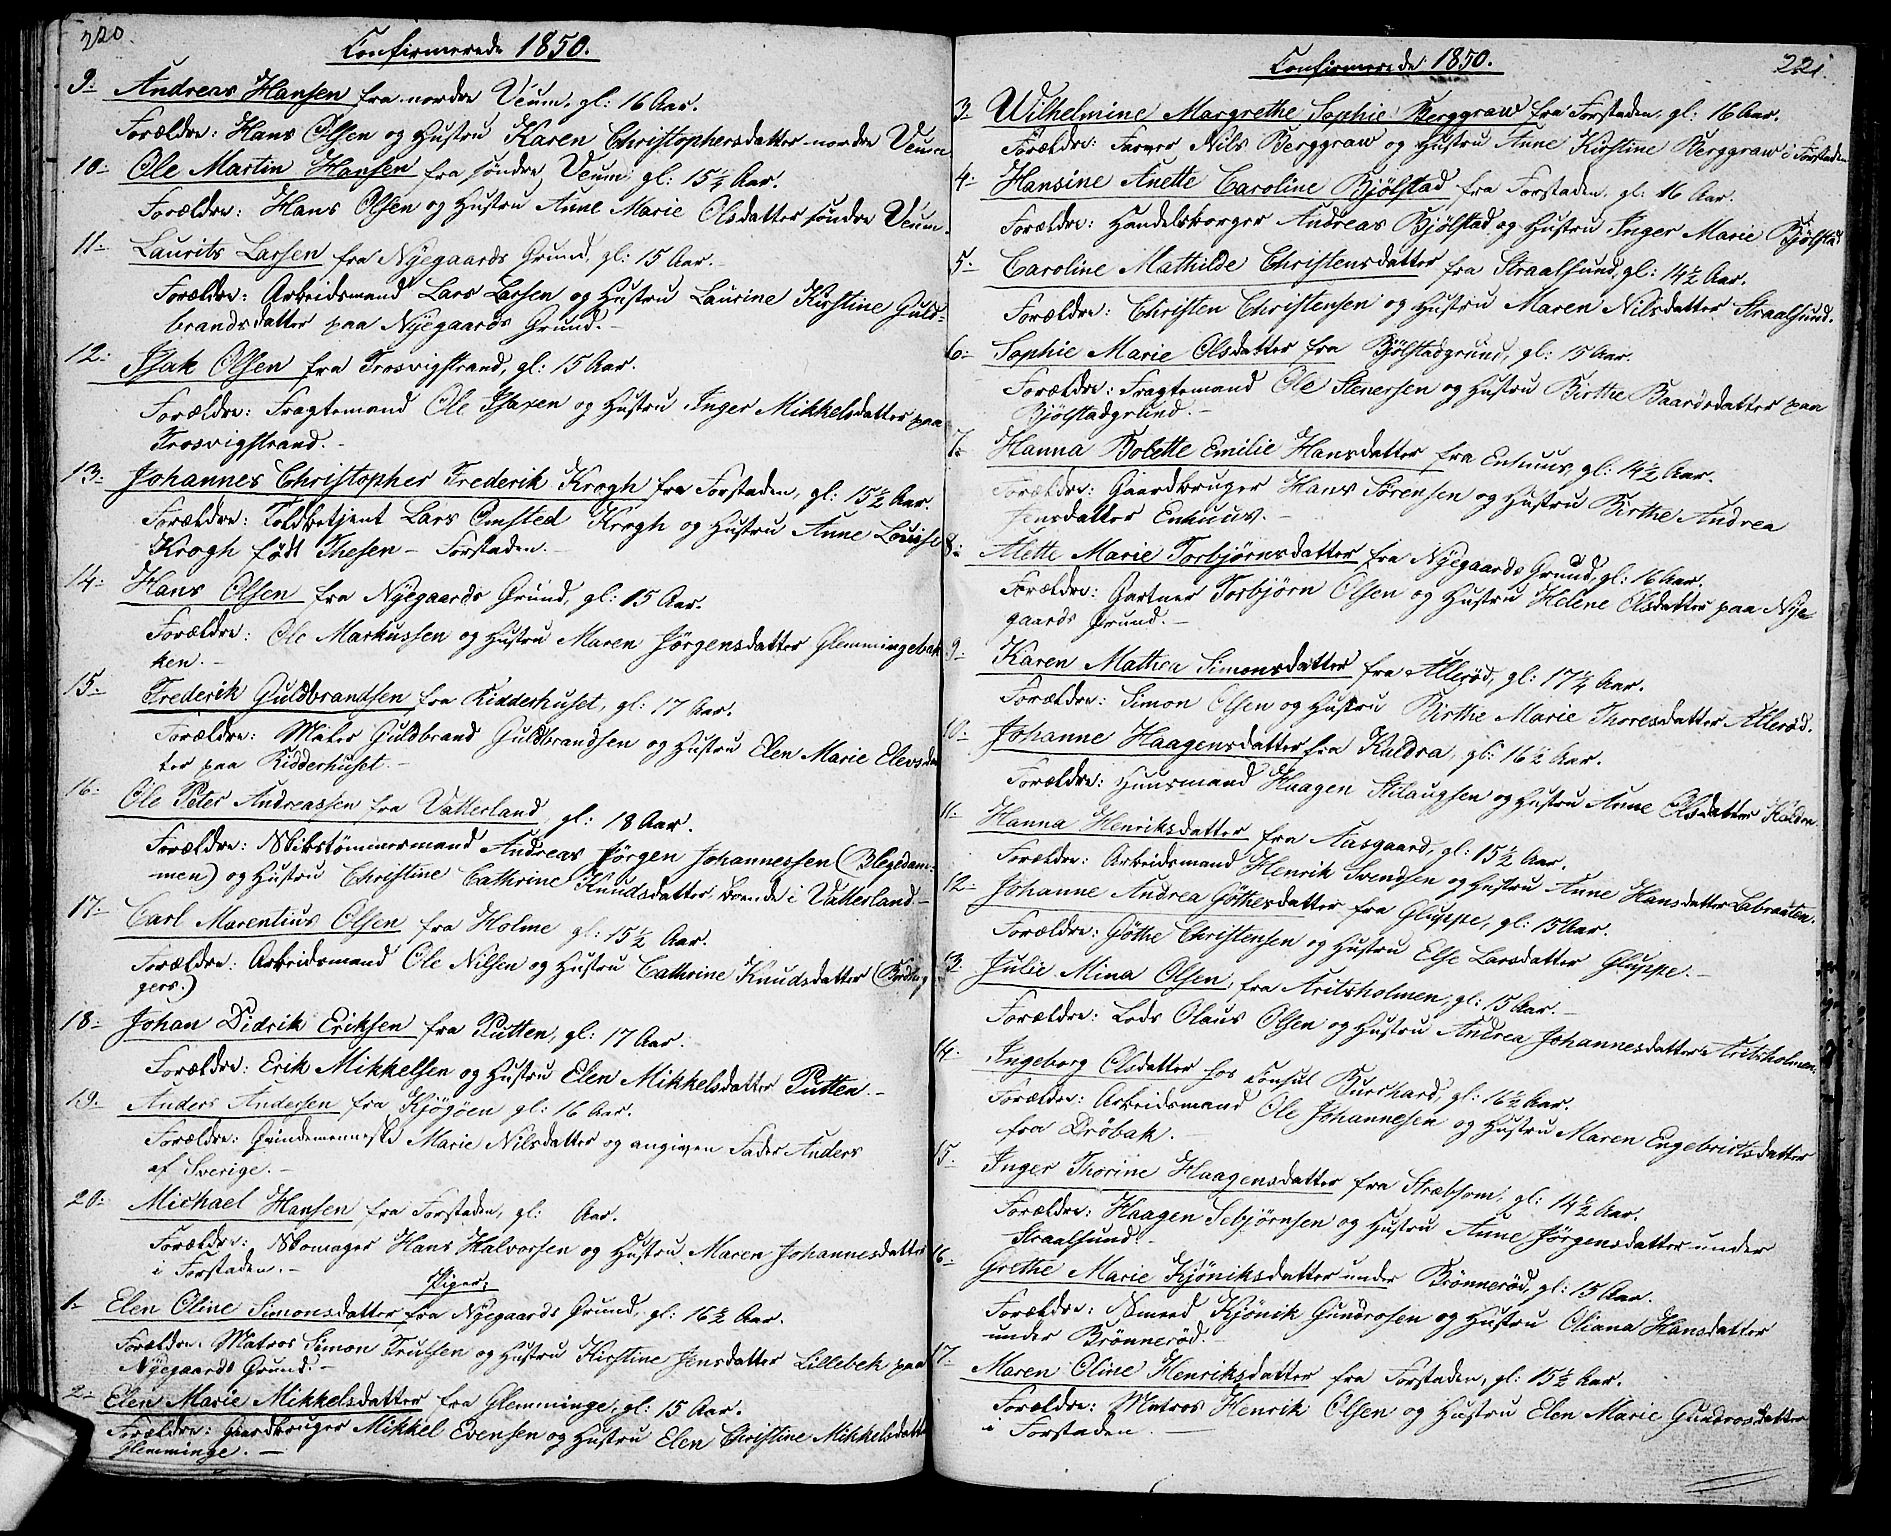 220.
Confirmerede 1850.
9. Andreas Hansen fra nordre Veum, gl: 16 Aar.
Forældre: Hans Olsen og Hustru Karen Christophersdatter nordre Veum
10. Ole Martin Hansen fra søndre Veum gl: 15¼ Aar.
Forældre: Hans Olsen og Hustru Anne Marie Olsdatter søndre Veum.
11. Laurits Larsen fra Nyegaards Grund, gl: 15 Aar.
Forældre: Arbeidsmand Lars Larsen og Hustru Laurine Kirstine Guld-
brandsdatter paa Nyegaards Grund.
12. Isak Olsen fra Trosvigstrand, gl: 15 Aar.
Forældre: Fragtemand Ole Isaxen og Hustru Inger Mikkelsdatter paa
Trosvigstrand.
13. Johannes Christopher Frederik Krogh fra Forstaden, gl: 15½ Aar.
Forældre: Toldbetjent Lars Omsted Krogh og Hustru Anne Louise
Krogh født Thesen - Forstaden.
14. Hans Olsen fra Nyegaards Grund, gl: 15 Aar.
Forældre: Ole Markussen og Hustru Maren Jörgensdatter Glemmingebak
ken.
15. Frederik Guldbrandsen fra Ridderhuset, gl: 17 Aar.
Forældre: Maler Guldbrand Guldbrandsen og Hustru Elen Marie Elevsdat
ter paa Ridderhuset.
16. Ole Peter Andreassen fra Vatterland, gl: 18 Aar.
Forældre: Skibstömmermand Andreas Jörgen Johannessen (Blegedam-
men) og Hustru Christine Cathrine Knudsdatter, boende i Vatterland
17. Carl Marentius Olsen fra Holme gl: 15½ Aar.
Forældre: Arbeidsmand Ole Nilsen og Hustru Cathrine Knudsdatter
gers.)
18. Johan Didrik Eriksen fra Putten, gl: 17 Aar.
Forældre: Erik Mikkelsen og Hustru Elen Mikkelsdatter Putten.
19. Anders Andersen fra Kjögöen gl: 16 Aar.
Forældre: Qvindemenneske Marie Nilsdatter og angiven Fader Anders
af Sverige.
20. Michael Hansen fra Forstaden, gl: Aar.
Forældre: Skomager Hans Halvorsen og Hustru Maren Johannesdatter
i Forstaden.
Piger:
1. Elen Oline Simonsdatter fra Nyegaards Grund, gl: 16½ Aar.
Forældre: Matros Simon Trulsen og Hustru Kirstine Jensdatter Lillebek paa
Nyegaards Grund.
2. Elen Marie Mikkelsdatter fra Glemminge, gl: 15 Aar.
Forældre: Gaardbruger Mikkel Evensen og Hustru Elen Christine Mikkelsdatter
Glemminge.
221.
Confirmerede 1850.
3. Wilhelmine Margrethe Sophie Berggraw fra Forstaden, gl: 16 Aar.
Forældre: Farver Nils Berggraw og Hustru Anne Kirstine Berggraw i Forstaden
4. Hansine Anette Caroline Bjölstad fra Forstaden, gl: 16 Aar.
Forældre: Handelsborger Andreas Bjölstad og Hustru Inger Marie Bjölstad
5. Caroline Mathilde Christensdatter fra Straalsund, gl: 14½ Aar.
Forældre: Christen Christensen og Hustru Maren Nilsdatter Straalsund.
6. Sophie Marie Olsdatter fra Bjölstadgrund, gl: 15 Aar.
Forældre: Fragtemand Ole Stenersen og Hustru Birthe Baardsdatter paa
Bjölstadgrund.
7. Hanna Bolette Emilie Hansdatter fra Enhuus, gl: 14½ Aar.
Forældre: Gaardbruger Hans Sörensen og Hustru Birthe Andrea
Jensdatter Enhuus.
8. Alette Marie Torbjørnsdatter fra Nyegaards Grund, gl: 16 Aar.
Forældre: Gartner Torbjörn Olsen og Hustru Helene Olsdatter paa Nye
gaards Grund.
9. Karen Mathea Simonsdatter fra Alleröd, gl: 17¼ Aar.
Forældre: Simon Olsen og Hustru Birthe Marie Thoresdatter Alleröd.
10. Johanne Haagensdatter fra Kaldra, gl: 16½ Aar.
Forældre: Huusmand Haagen og Hustru Anne Olsdatter Kaldra.
11. Hanna Henriksdatter fra Aasgaard, gl: 15½ Aar.
Forældre: Arbeidsmand Henrik Svendsen og Hustru Anne Hansdatter Labraaten.
12. Johanne Andrea Göthesdatter fra Gluppe, gl: 15 Aar.
Forældre: Göthe Christensen og Hustru Else Larsdatter Gluppe.
13. Julie Mina Olsen, fra Kritsholmen, gl: 15 Aar.
Forældre: Lods Olaus Olsen og Hustru Andrea Johannesdatter Kritsholmen.
14. Ingeborg Olsdatter hos Consul Burchard, gl: 16½ Aar.
Forældre: Arbeidsmand Ole Johannesen og Hustru Maren Engebretsdatter
fra Dröbak.
15. Inger Thorine Haagensdatter fra Stræbsom, gl: 14½ Aar.
Forældre: Haagen Sebjörnsen og Hustru Anne Jörgensdatter under
Straalsund.
16. Grethe Marie Kjöniksdatter under Brönneröd, gl: 15 Aar.
Forældre: Smeed Kjönik Gundrosen og Hustru Oliana Hansdatter
under Brönneröd.
17. Maren Oline Henriksdatter fra Forstaden, gl: 15½ Aar.
Forældre: Matros Henrik Olsen og Hustru Elen Marie Gundrosdatter
i Forstaden.